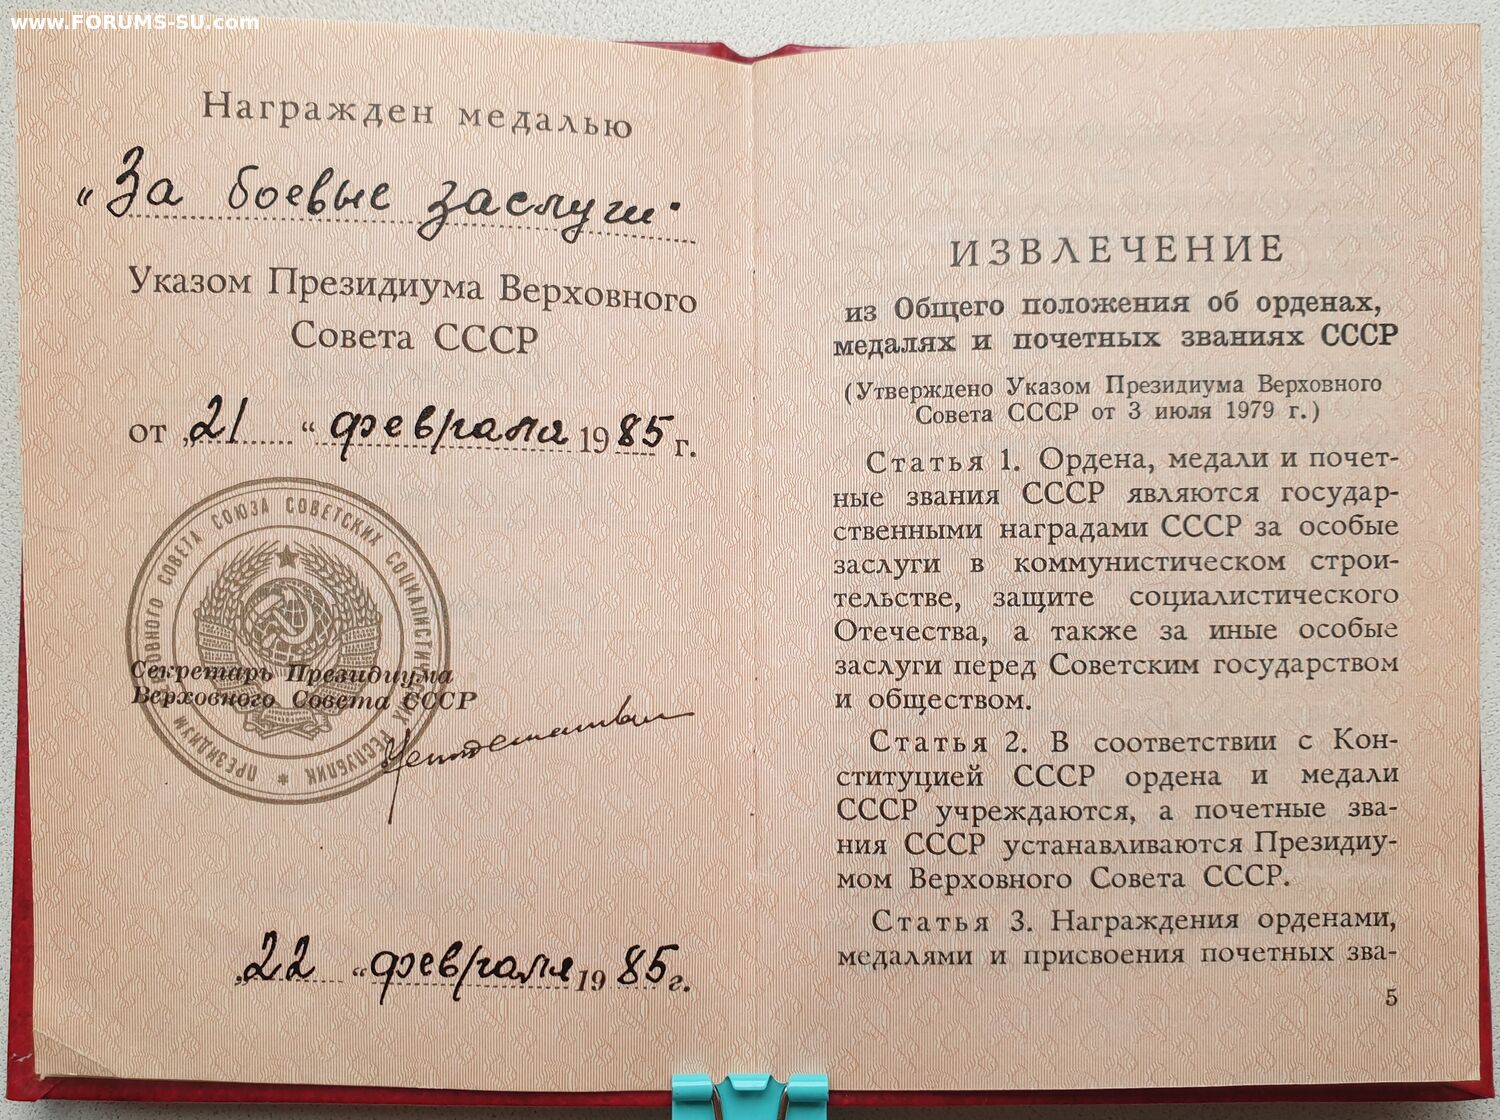 www.FORUMS-SU.com
Награжден медалью
„За боевые заслуги"
Указом Президиума Верховного
Совета СССР
от „21 “ февраля 1985 г.
ПРЕЗИДИУМ ВЕРХОВНОГО СОВЕТА СОЮЗА СОВЕТСКИХ СОЦИАЛИСТИЧЕСКИХ РЕСПУБЛИК *
Секретарь Президиума
Верховного Совета СССР
„22 “ февраля 1985 г.
ИЗВЛЕЧЕНИЕ
из Общего положения об орденах,
медалях и почетных званиях СССР
(Утверждено Указом Президиума Верховного
Совета СССР от 3 июля 1979 г.)
Статья 1. Ордена, медали и почет-
ные звания СССР являются государ-
ственными наградами СССР за особые
заслуги в коммунистическом строи-
тельстве, защите социалистического
Отечества, а также за иные особые
заслуги перед Советским государством
и обществом.
Статья 2. В соответствии с Кон-
ституцией СССР ордена и медали
СССР учреждаются, а почетные зва-
ния СССР устанавливаются Президиу-
мом Верховного Совета СССР.
Статья 3. Награждения орденами,
медалями и присвоения почетных зва-
5